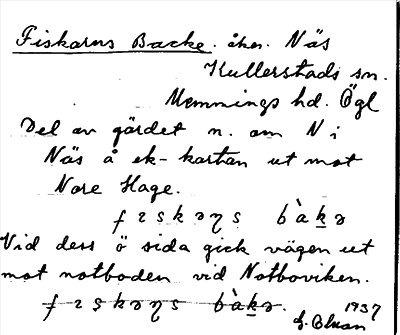 Fiskarns Backe. åker. Näs
Kullerstads sn.
Memmings hd. Ögl
Del av gärdet n. om N i
Näs å ek-kartan ut mot
Nore Hage.
fɪskəɳs bàkə
Vid dess ö sida gick vägen ut
mot notboden vid Notboviken.
fɪskəɳs bàkə.
1937